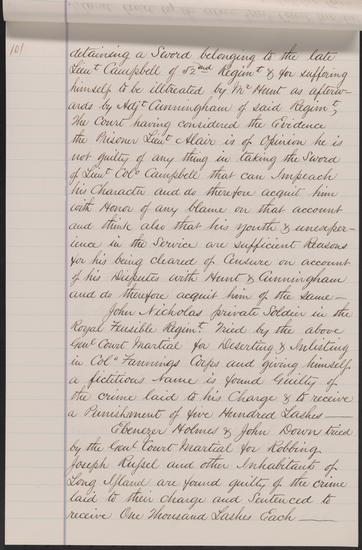 101
detaining a Sword belonging to the late
Lieut Campbell of 52nd Regimt & for suffering
himself to be illtreated by Mr Hunt as afterw-
ards by Adjt Cunningham of said Regimt,
The Court having considered the Evidence
the Prisoner Lieut Alair is of Opinion he is
not guilty of any thing in taking the Sword
of Lieut Colo Campbell that can Impeach
his Character and do therefore acquit him
with Honor of any blame on that account
and think also that his Youth & unexper-
ience in the Service are sufficient Reasons
for his being cleared of Censure on account
of his Disputes with Hunt & Cunningham
and do therefore acquit him of the same —
John Nicholas private Soldier in the
Royal Fusible Regimt. Tried by the above
Genl Court Martial for Deserting & Inlisting
in Colo Fannings Corps and giving himself
a fictitious Name is found Guilty of
the crime laid to his Charge & to receive
a Punishment of five Hundred Lashes —
Ebenezer Holmes & John Down tried
by the Genl Court Martial for Robbing
Joseph Russel and other Inhabitants of
Long Island are found guilty of the crime
laid to their charge and Sentenced to
receive One Thousand Lashes Each —